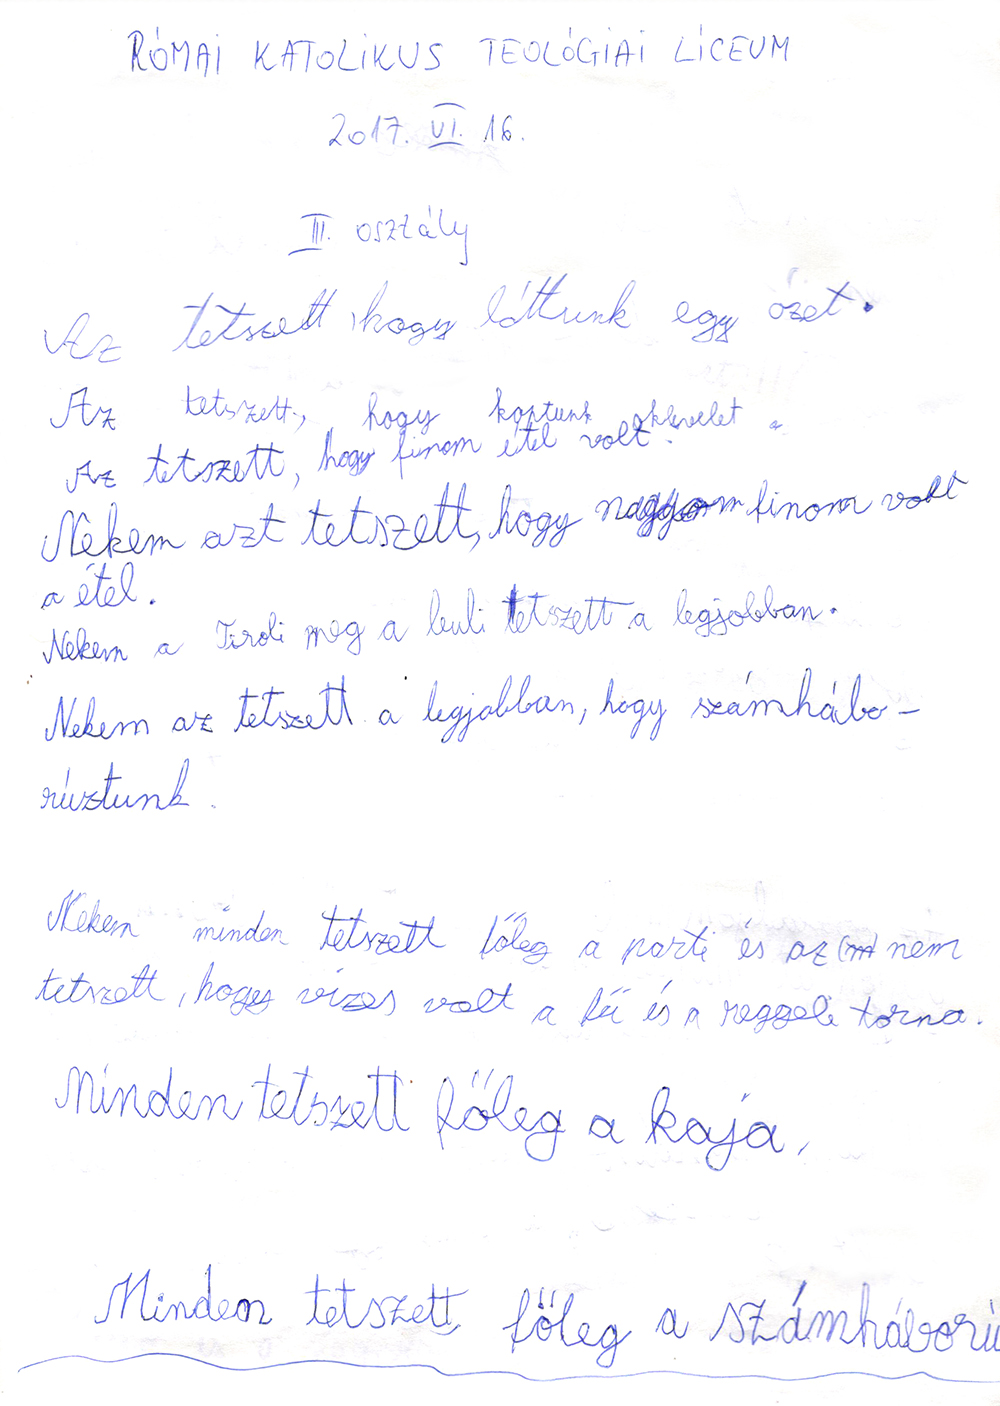 RÓMAI KATOLIKUS TEOLÓGIAI LÍCEUM
2017. VI. 16.
III. osztály
Az tetszett, hogy láttunk egy őzet.
Az tetszett, hogy kaptunk oklevelet.
Az tetszett, hogy finom étel volt.
Nekem azt tetszett, hogy nagyon finom volt
a étel.
Nekem a Tiroli meg a buli tetszett a legjobban.
Nekem az tetszett a legjobban, hogy számhábo-
rúztunk.
Nekem minden tetszett főleg a parti és az nem
tetszett, hogy vizes volt a fű és a reggeli torna.
Minden tetszett főleg a kaja.
Minden tetszett főleg a számháború